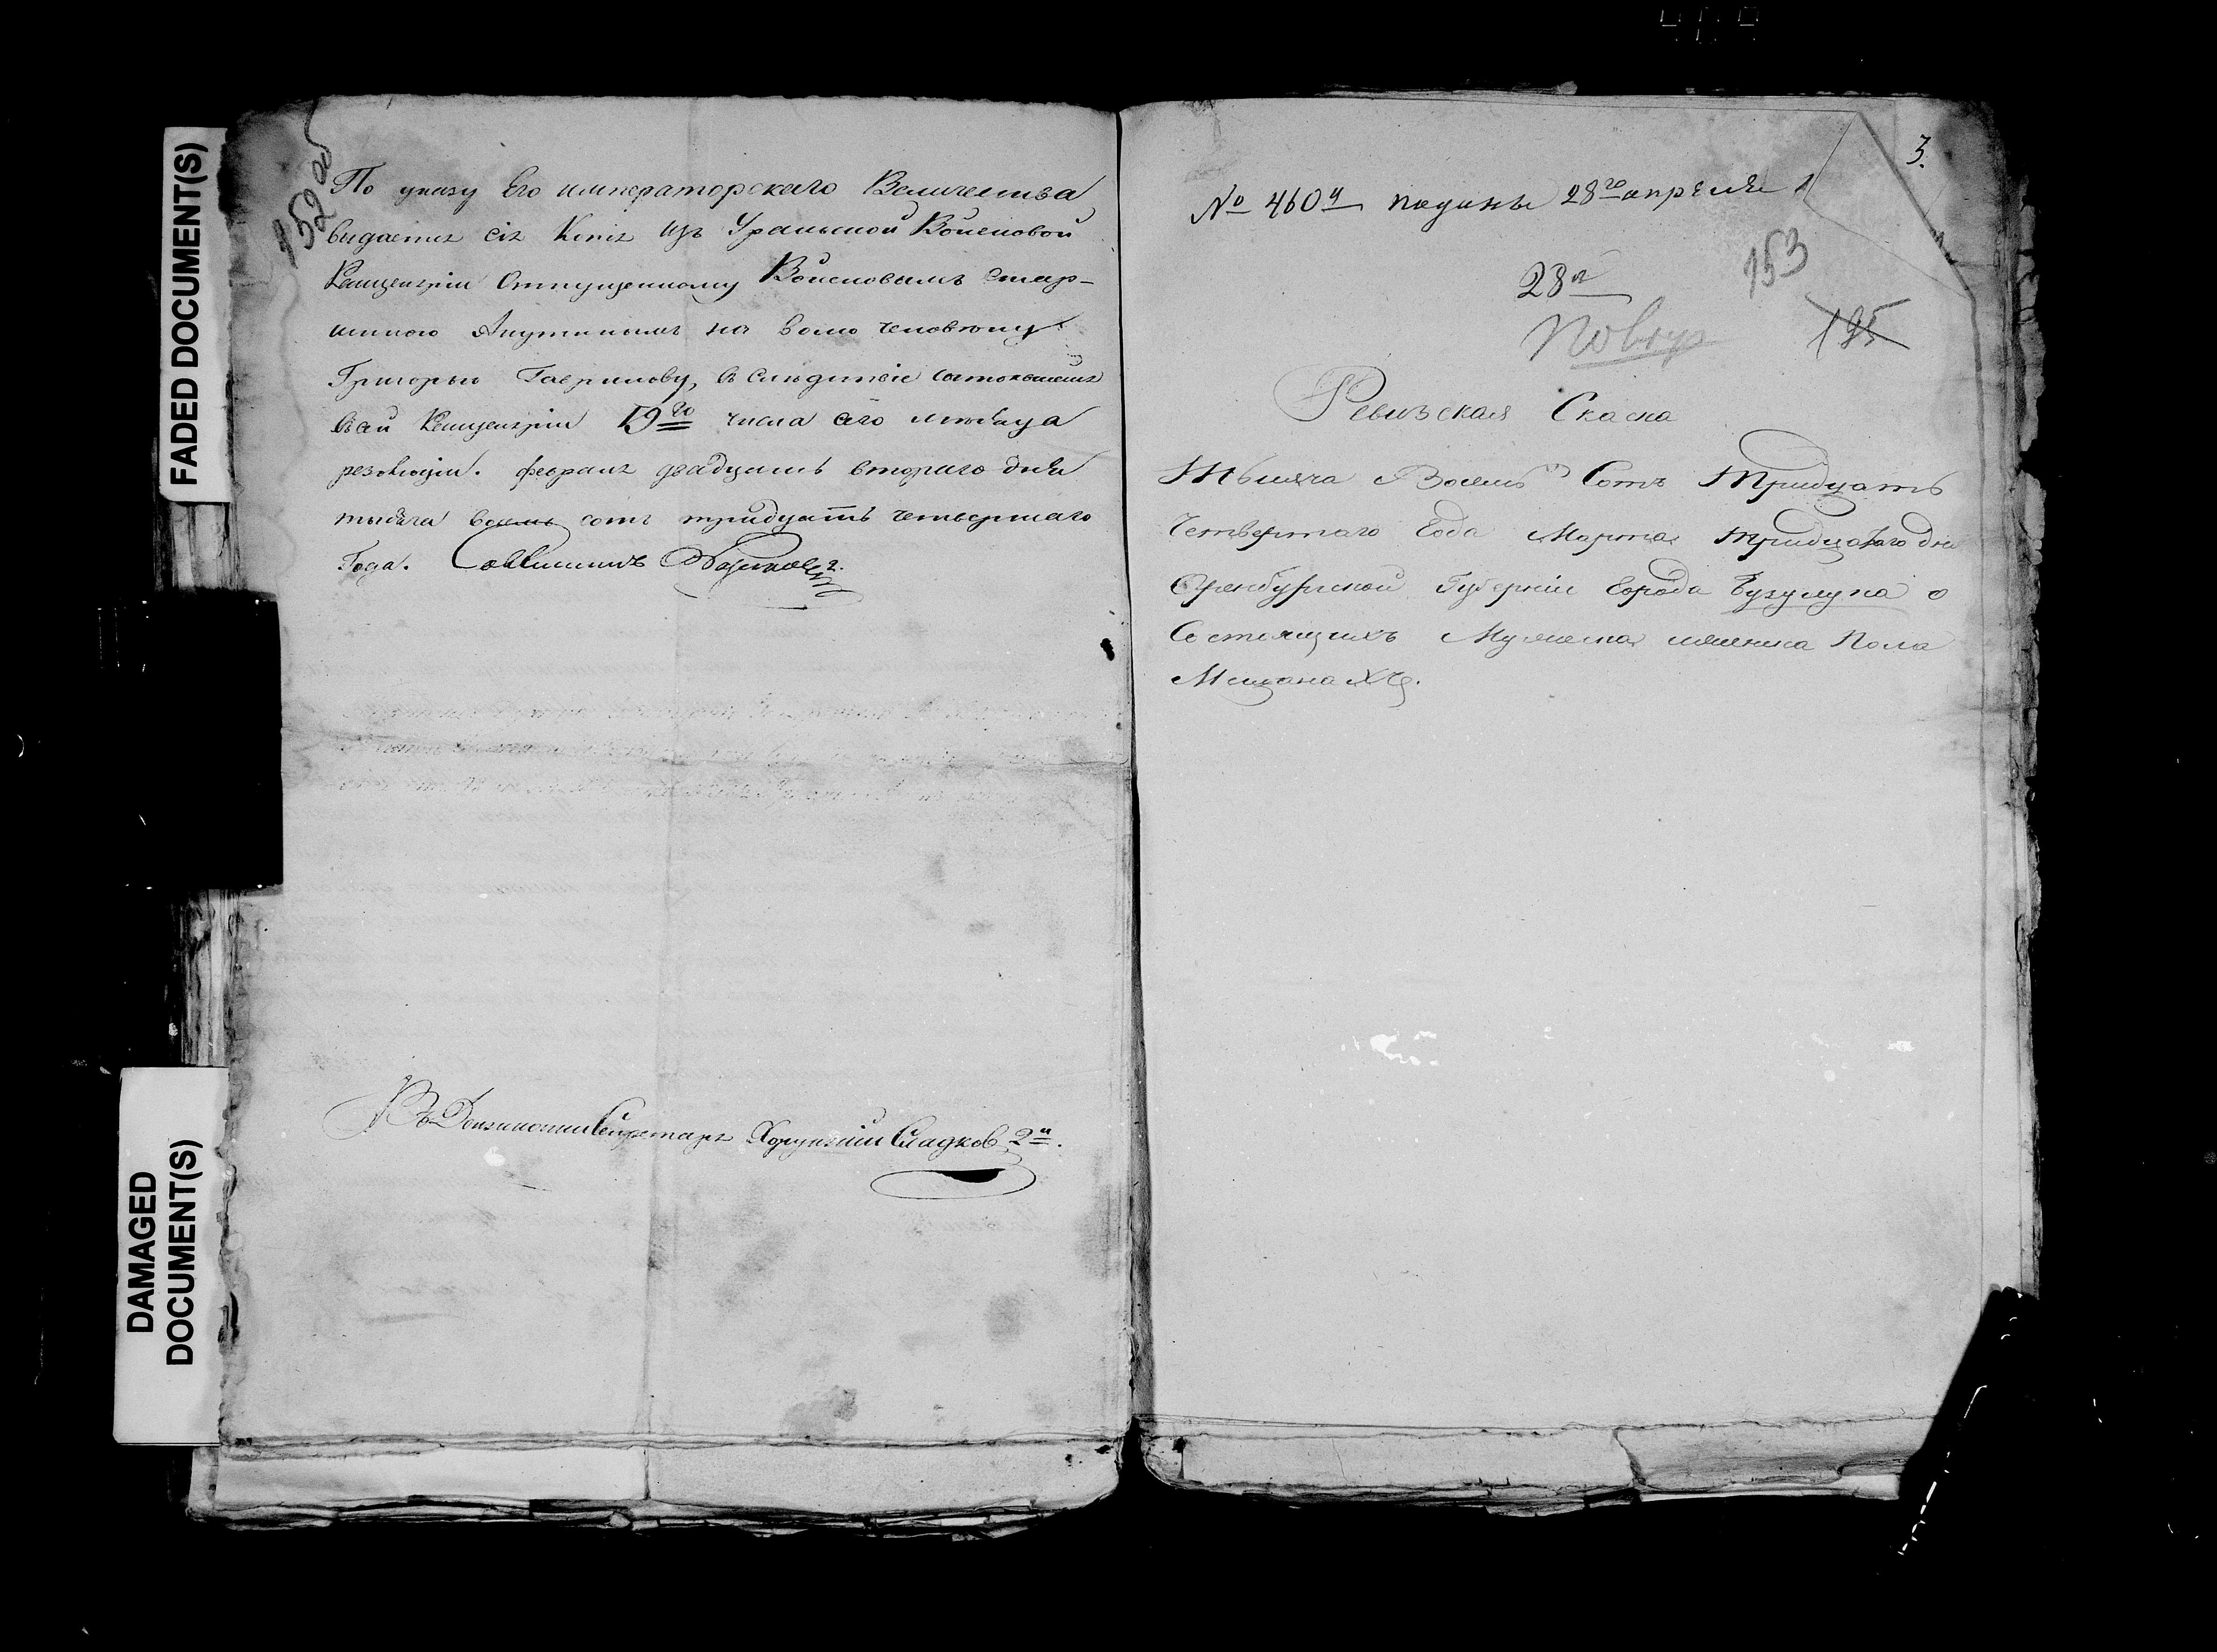 FADED DOCUMENT(S)
DAMAGED DOCUMENT(S)
152 об
По указу Его императорскаго Величества
выдается сія Копія изъ Уральской Войсковой
Канцеляріи Отпущенному Войсковымъ Стар-
шиною Акутинымъ на волю человѣку
Григорью Гаврилову, въ слѣдствіе состоявшейся
въ сей Канцеляріи 19го числа сего мѣсяца
резолюціи. февраля двадцать втораго дня
тысяча восемь сотъ тридцать четвертаго
Года.
Секретарь Хорунжій Сладков 2й.
3.
№ 460й поданы 28го апреля 1
28й
153
195
Повтор
Ревизская Скаска
Тысяча Восемь Сотъ Тридцать
Четвертаго Года Марта Тридцатаго дня
Оренбургской Губерніи Города Бузулука о
Состоящихъ Мужеска женска Пола
Мещанахъ.